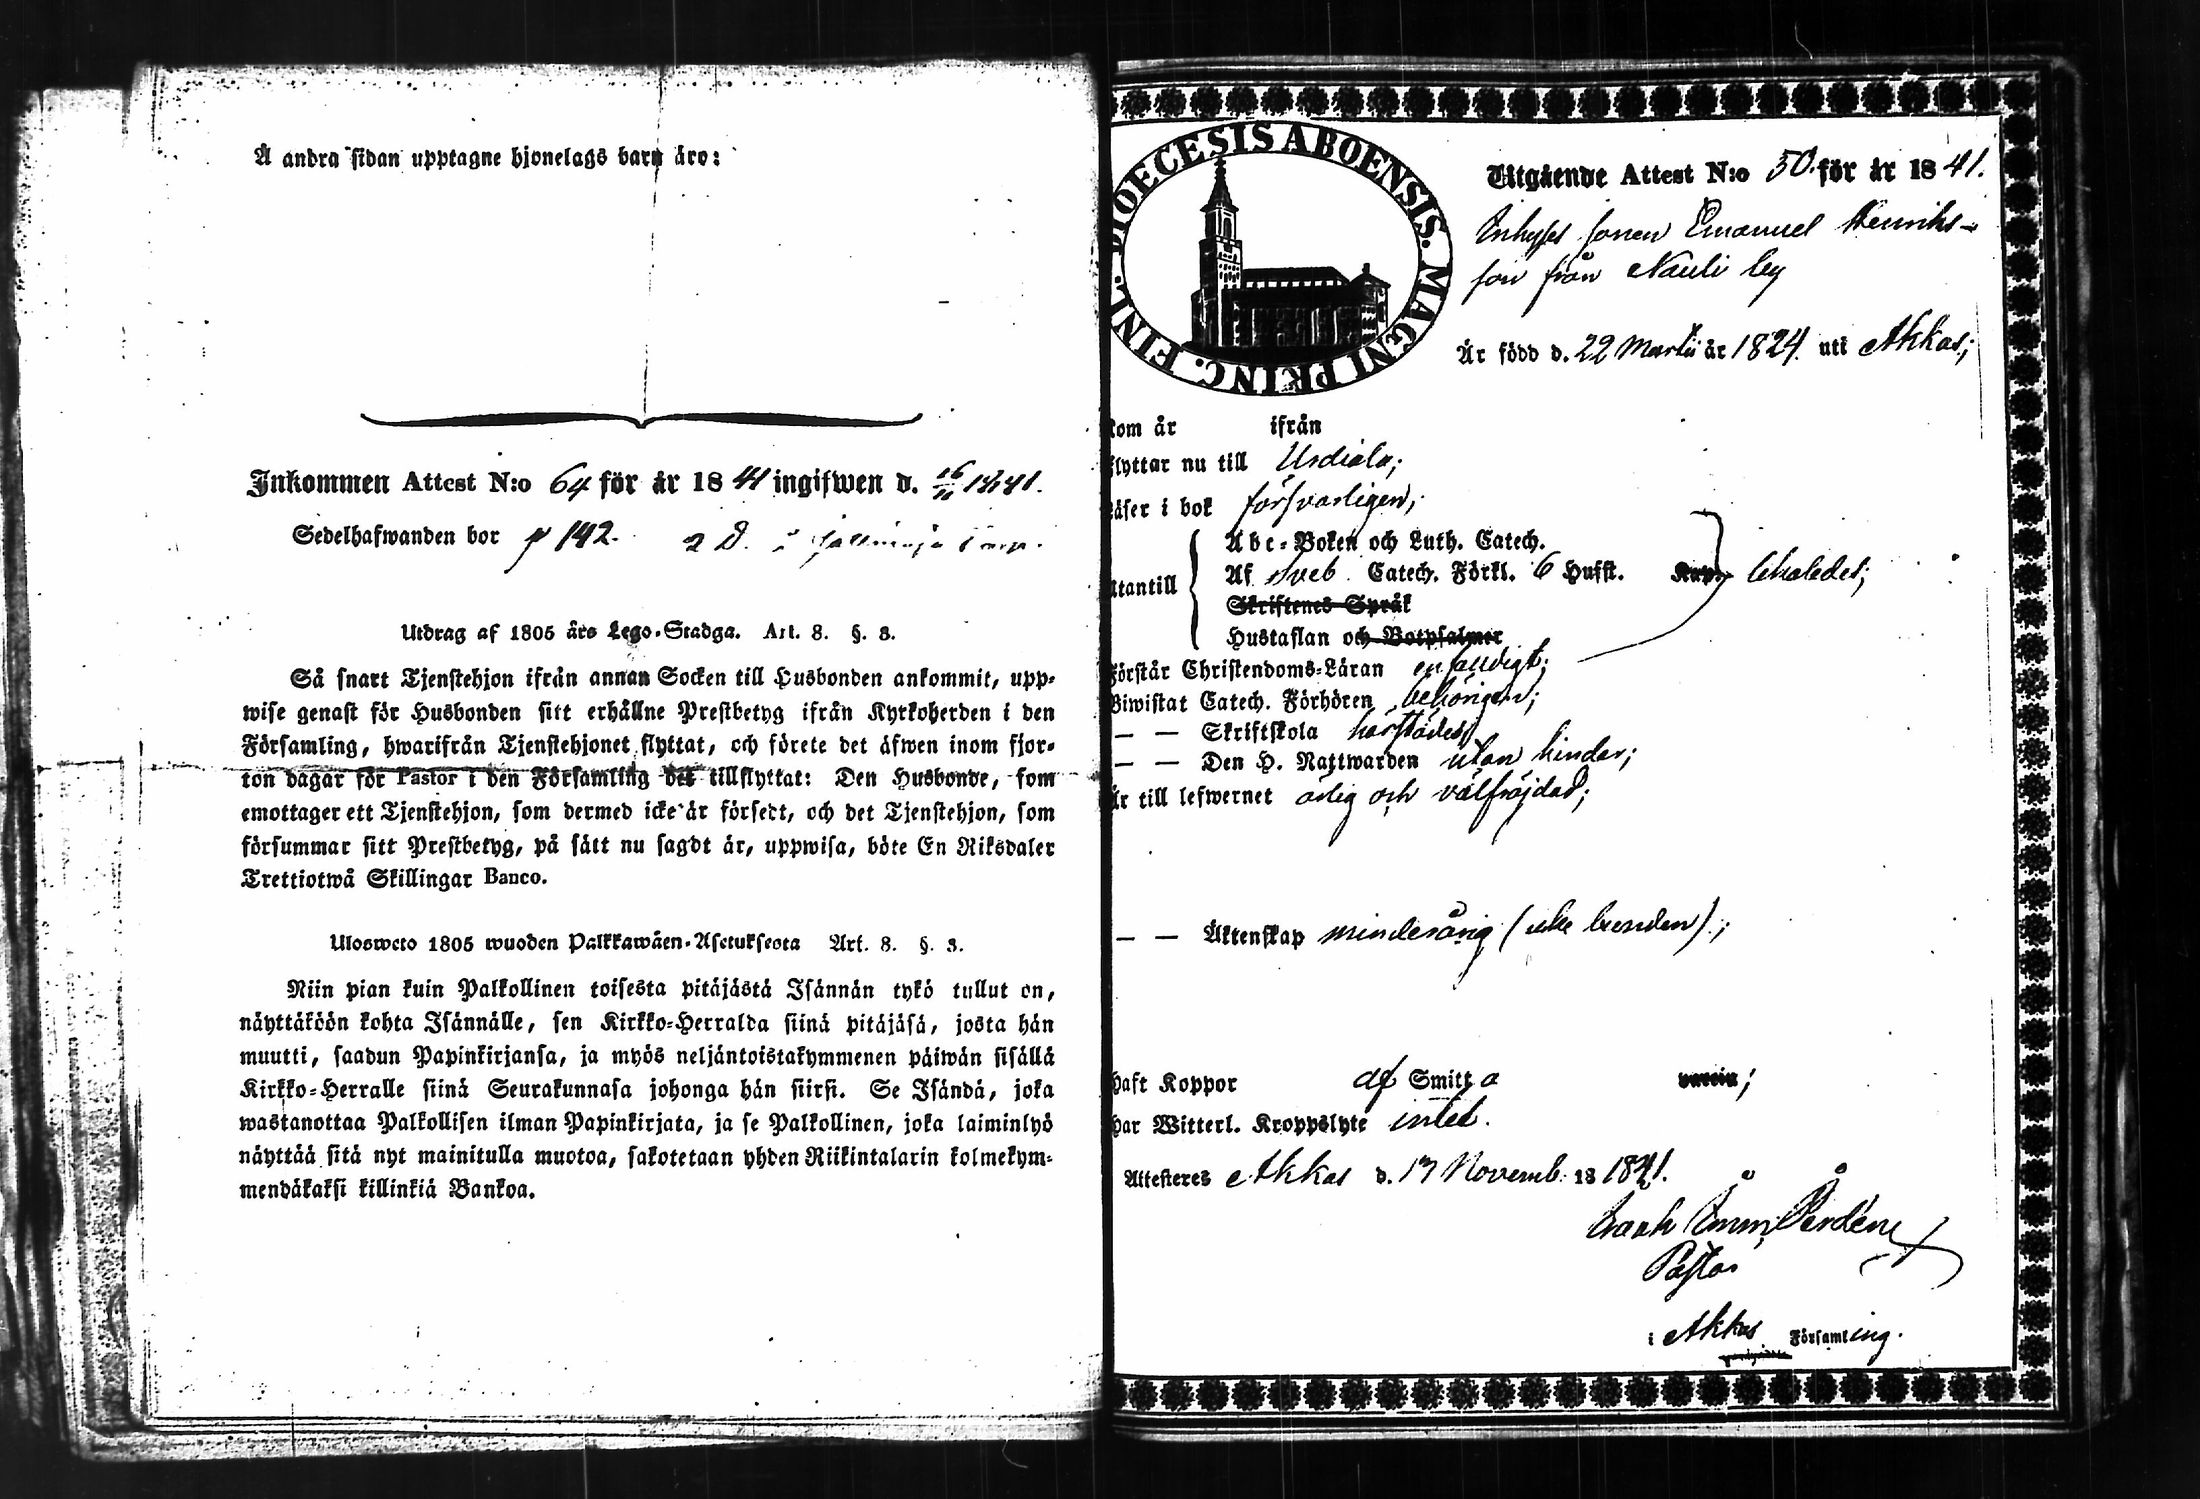 Å andra sidan upptagne hjonelags barn äro:
Inkommen Attest N:o 64 för år 1841 ingifwen d. 16/11 1841.
Sedelhafwanden bor p 142.
Utdrag af 1805 års Lego-Stadga. Art. 8. §. 3.
Så snart Tjenstehjon ifrån annan Socken till Husbonden ankommit, upp-
wise genast för Husbonden sitt erhållne Prestbetyg ifrån Kyrkoherden i den
Församling, hwarifrån Tjenstehjonet flyttat, och förete det äfwen inom fjor-
ton dagar för Pastor i den Församling det tillflyttat: Den Husbonde, som
emottager ett Tjenstehjon, som dermed icke är försedt, och det Tjenstehjon, som
försummar sitt Prestbetyg, på sätt nu sagdt är, uppwisa, böte En Riksdaler
Trettiotwå Skillingar Banco.
Ulosweto 1805 wuoden Palkkawäen-Asetuksesta Art. 8. §. 3.
Niin pian kuin Palkollinen toisesta pitäjästä Isännän tykö tullut on,
näyttäköön kohta Isännälle, sen Kirkko-Herralda siinä pitäjäsä, josta hän
muutti, saadun Papinkirjansa, ja myös neljäntoistakymmenen päiwän sisällä
Kirkko-Herralle siinä Seurakunnasa johonga hän siirsi. Se Isändä, joka
wastanottaa Palkollisen ilman Papinkirjata, ja se Palkollinen, joka laiminlyö
näyttää sitä nyt mainitulla muotoa, sakotetaan yhden Riikintalarin kolmekym-
mendäkaksi killinkiä Bankoa.
DIOECESIS ABOENSIS. MAGNI PRINC. FINL.
Utgående Attest N:o 50. för år 1841.
Inhyses sonen Emanuel Henriks-
son från Nauli by
Är född d. 22 Martii år 1824. uti Akkas;
kom år ifrån
flyttar nu till Urdiala;
läser i bok försvarligen;
Abc-Boken och Luth. Catech.
utantill Af Sveb. Catech. Förkl. 6 Hufst. Kap. skaledes;
Skriftenes Språk
Hustaflan och Botpsalmer
Förstår Christendoms-Läran enfaldigt;
Biwistat Catech. Förhören behörigen;
— — Skriftskola härstädes
— — Den H. Nattwarden utan hinder;
är till lefwernet ärlig och välfrejdad;
— — Äktenskap minderårig (icke bunden).;
haft Koppor af Smitta warein;
har Witterl. Kroppslyte intet.
Attesteres Akkas d. 13 Novemb. 18 1841.
Isaak Imm. Perdén
Pastor
i Akkas Församling.